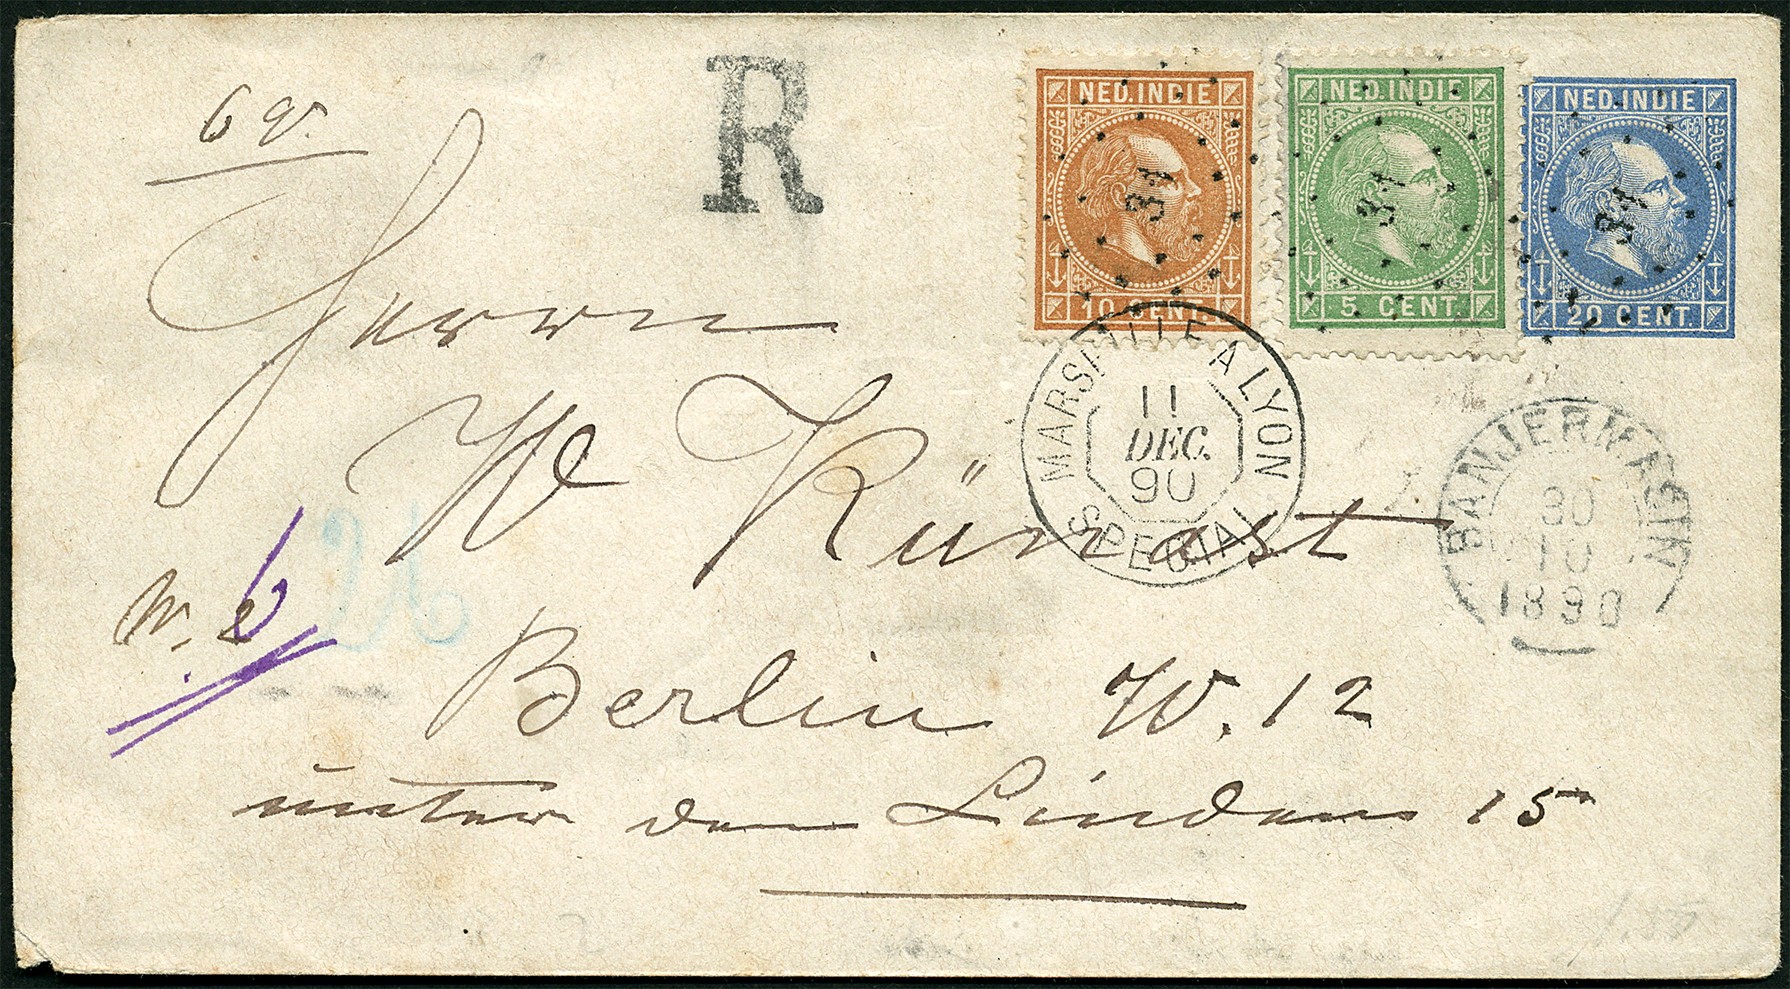 6 gr.
R
NED.INDIE
10 CENT.
31
NED.INDIE
5 CENT.
31
NED.INDIE
20 CENT.
31
MARSEILLE A LYON
11
DEC.
90
SPECIAL
BANJERMASIN
30
10
1890
Herrn
W Künast
Berlin W. 12
unter den Linden 15